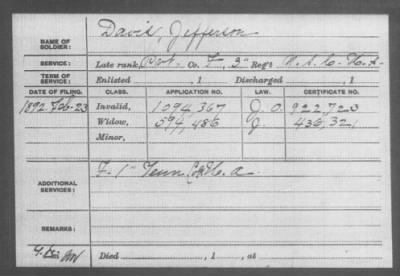 NAME OF SOLDIER: Davis, Jefferson
SERVICE: Late rank, Pvt. Co. F, 3" Reg't U.S.C. H.A.
TERM OF SERVICE: Enlisted , 1 Discharged , 1
DATE OF FILING. CLASS. APPLICATION NO. LAW. CERTIFICATE NO.
1892 Feb. 23 Invalid, 1094,367 J. O. 922,723
Widow, 594,486 J. 436,321
Minor,
ADDITIONAL SERVICES: F. 1" Tenn H. A.
REMARKS:
Died , 1 , at